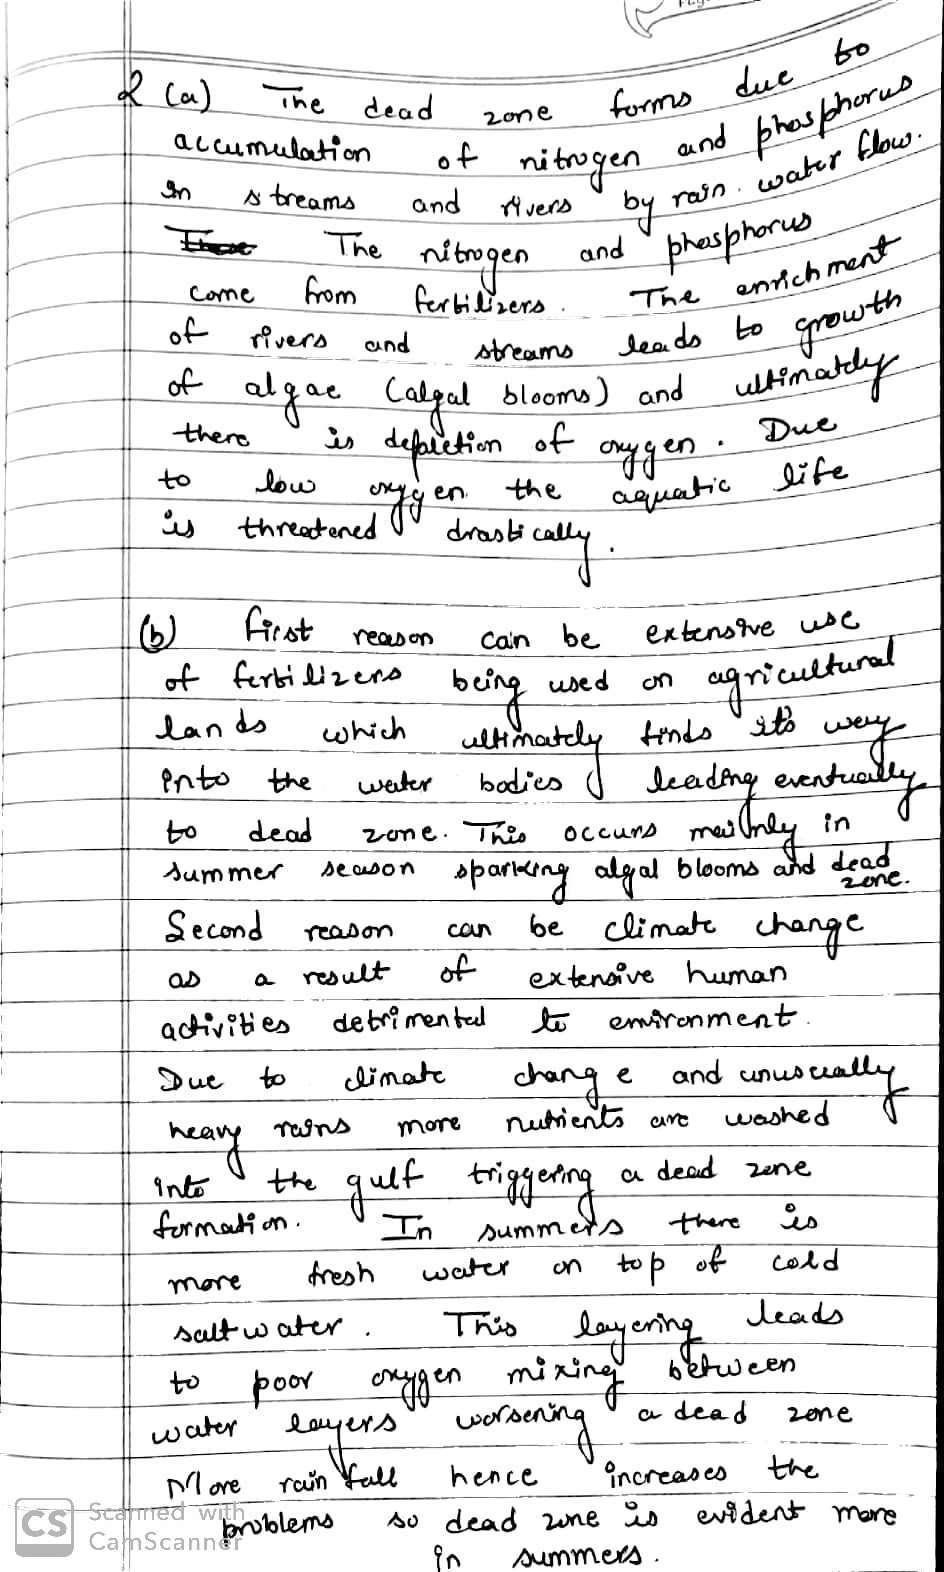 2 (a) The dead zone forms due to
accumulation of nitrogen and phosphorus
in streams and rivers by rain water flow.
The nitrogen and phosphorus
come from fertilizers. The enrichment
of rivers and streams leads to growth
of algae (algal blooms) and ultimately
there is depletion of oxygen. Due
to low oxygen the aquatic life
is threatened drastically.
(b) First reason can be extensive use
of fertilizers being used on agricultural
lands which ultimately finds it's way
into the water bodies leading eventually
to dead zone. This occurs mainly in
summer season sparking algal blooms and dead
zone.
Second reason can be climate change
as a result of extensive human
activities detrimental to environment.
Due to climate change and unusually
heavy rains more nutrients are washed
into the gulf triggering a dead zone
formation. In summers there is
more fresh water on top of cold
saltwater. This layering leads
to poor oxygen mixing between
water layers worsening a dead zone
More rainfall hence increases the
problems so dead zone is evident more
in summers.
CS Scanned with
CamScanner